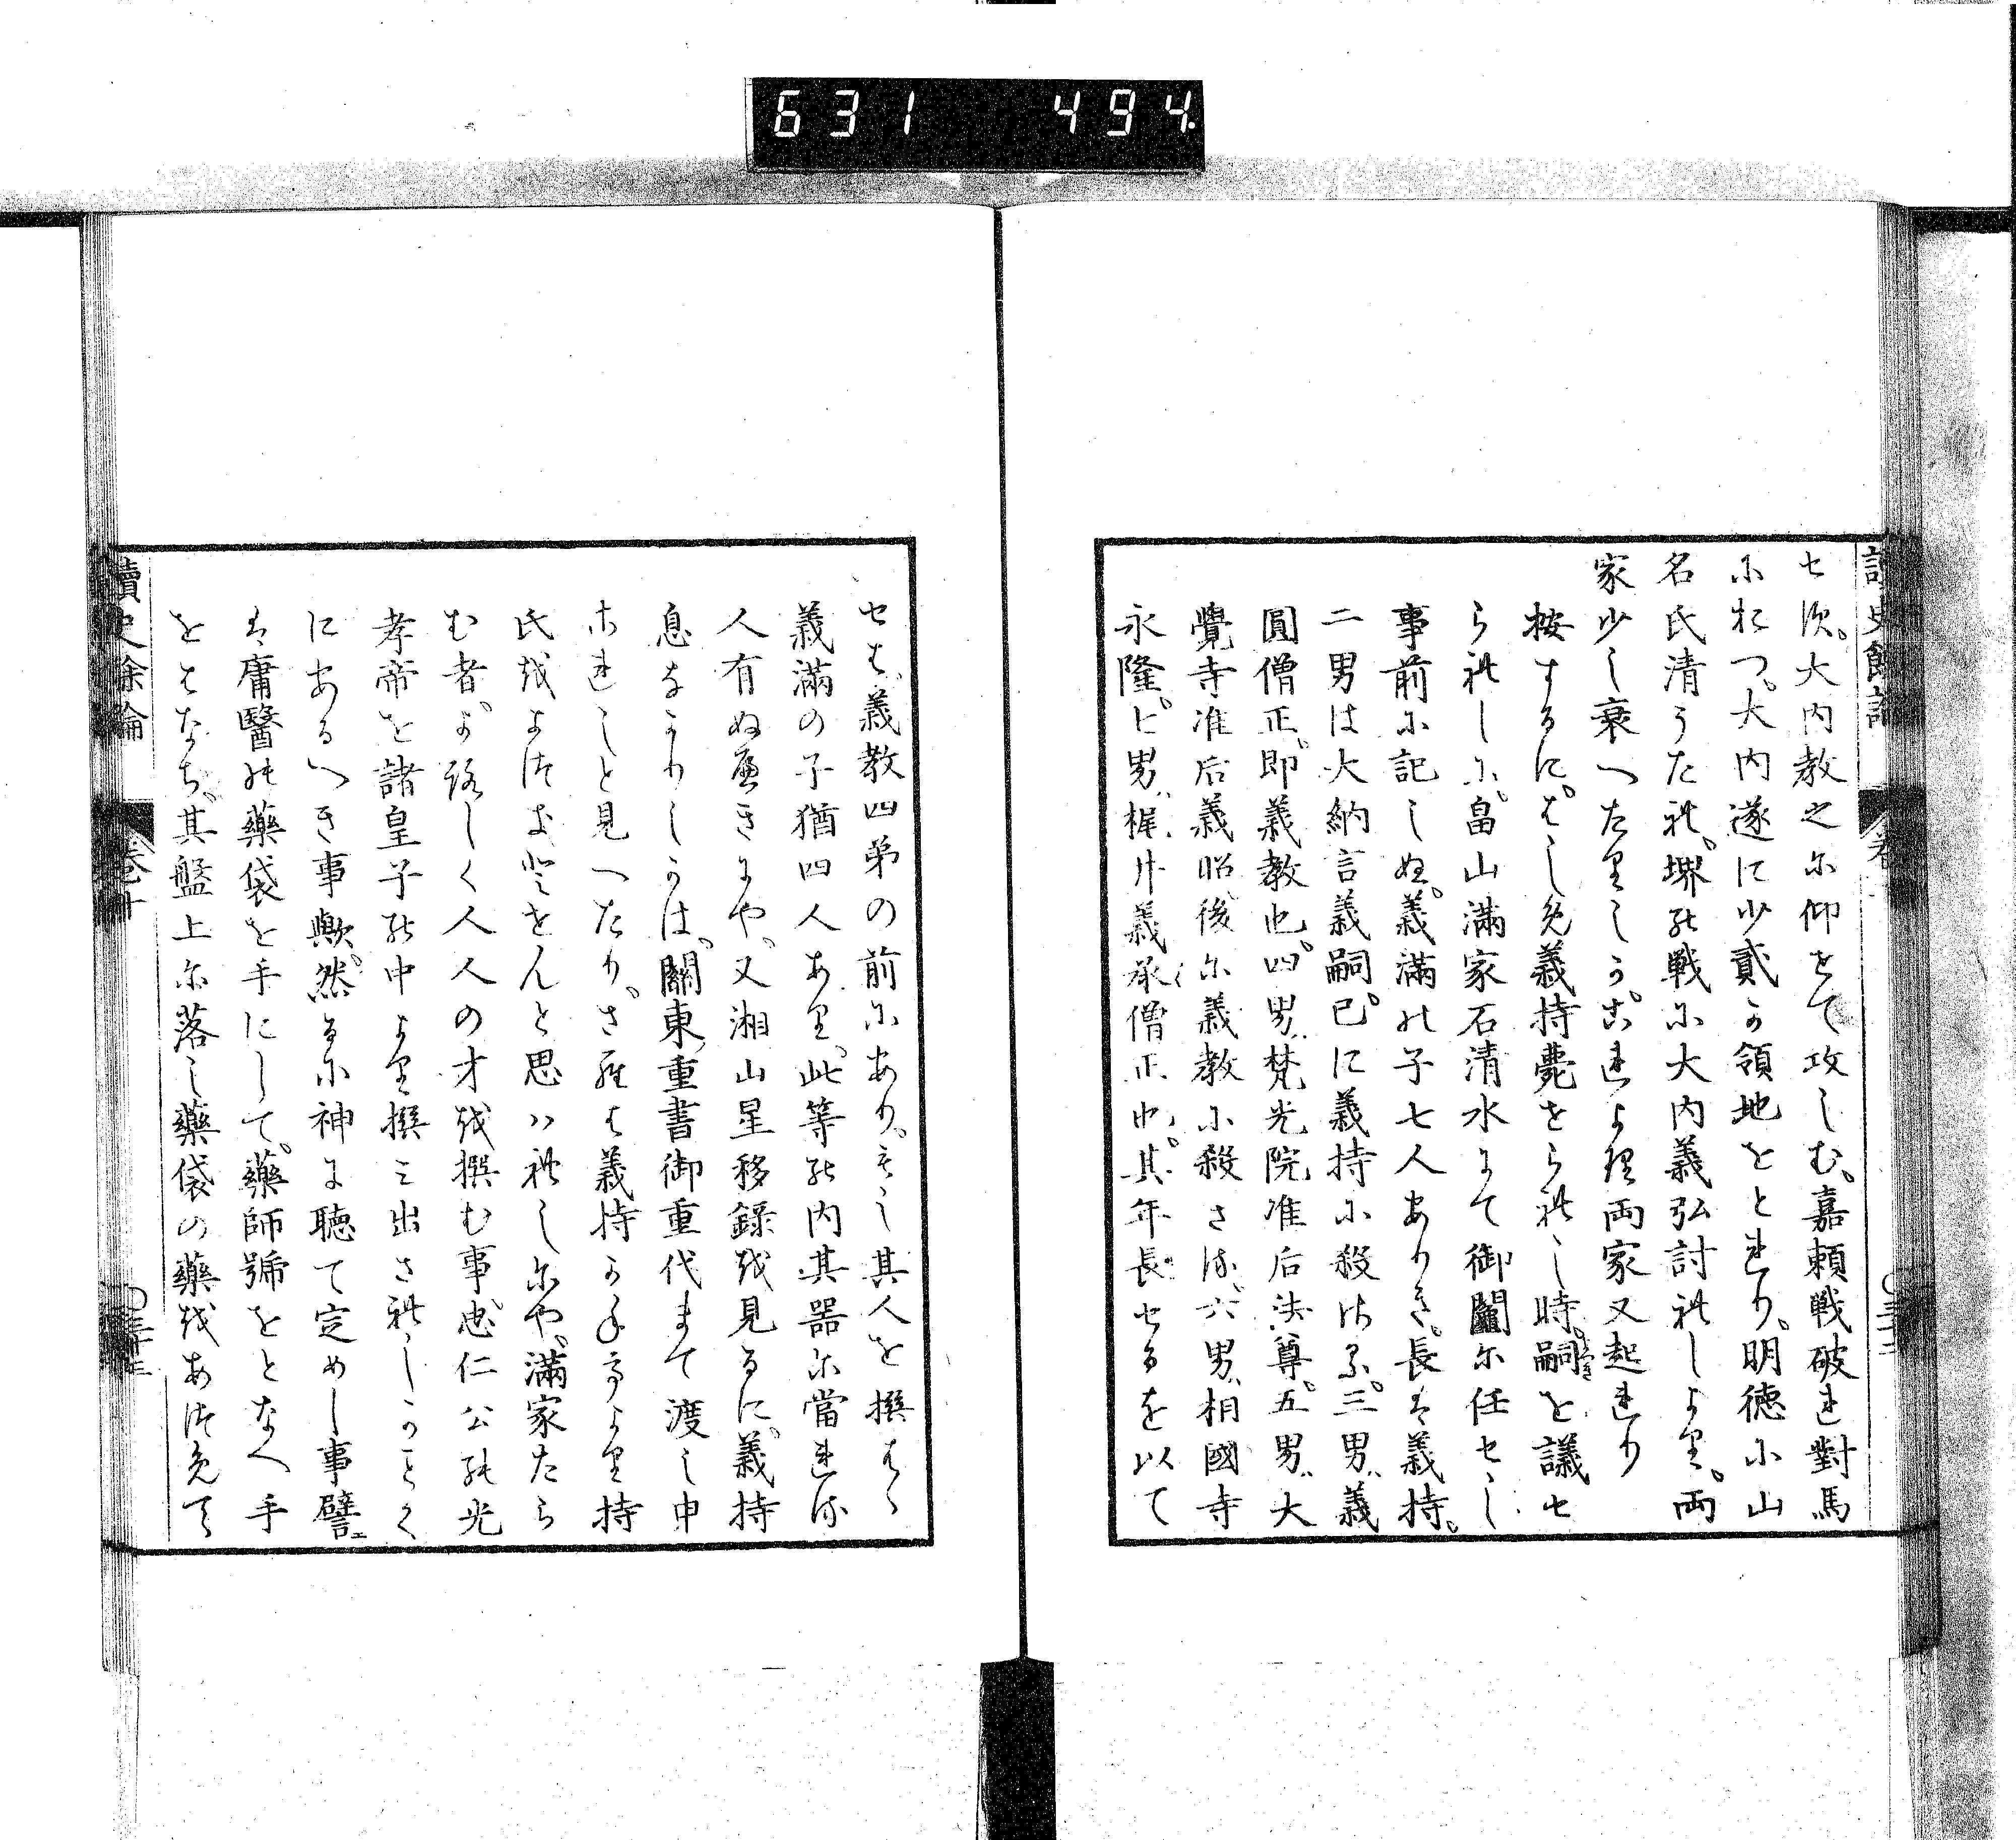 631 494.
讀史餘論
卷十
せす。大内教之に仰せて攻しむ。嘉頼戰破れ對馬
におつ。大内遂に少貳か領地をとれり。明德に山
名氏清うたれ。堺の戰に大内義弘討れしより。両
家少し衰へたりしか。これより両家又起れり
按するに。はしめ義持薨せられし時。嗣を議せ
られしに。畠山滿家石清水にて御鬮に任せし
事前に記しぬ。義滿の子七人ありき。長は義持。
二男は大納言義嗣。已に義持に殺さる。三男義
圓僧正。即義教也。四男梵光院准后法尊。五男大
覺寺准后義昭。後に義教に殺さる。六男相國寺
永隆。七男梶井義承僧正也。其年長せるを以て
せは。義教四弟の前にあり。もし其人を撰はゝ
義滿の子猶四人あり。此等の内其器に當れる
人有ぬへきにや。又湘山星移錄を見るに。義持
息なかりしかは。關東重書御重代まて渡し申
されしと見へたり。されは義持かねてより持
氏をよつきとせんと思はれしにや。滿家たら
む者。よろしく人人の才を撰む事。忠仁公の光
孝帝を諸皇子の中より撰み出されしかことく
にあるへき事歟。然るに神に聽て定めし事譬ヱ
は庸醫の藥袋を手にして。藥師號をとなへ手
をはなち。其盤上に落し藥袋の藥をあつめて
讀史餘論
卷十